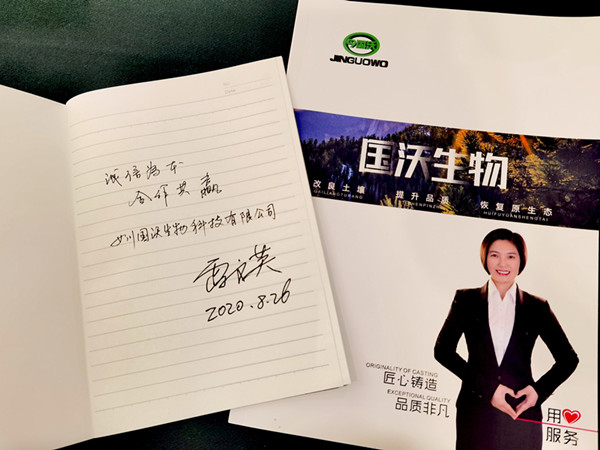 诚信为本
合作共赢
四川国沃生物科技有限公司
2020.8.26
今国沃
JINGUOWO
国沃生物
改良土壤 提升品质 恢复原生态
GAILIANGTURANG HUIFUYUANSHENGTAI
ORIGINALITY OF CASTING
匠心铸造
EXCEPTIONAL QUALITY
品质非凡
用
服务